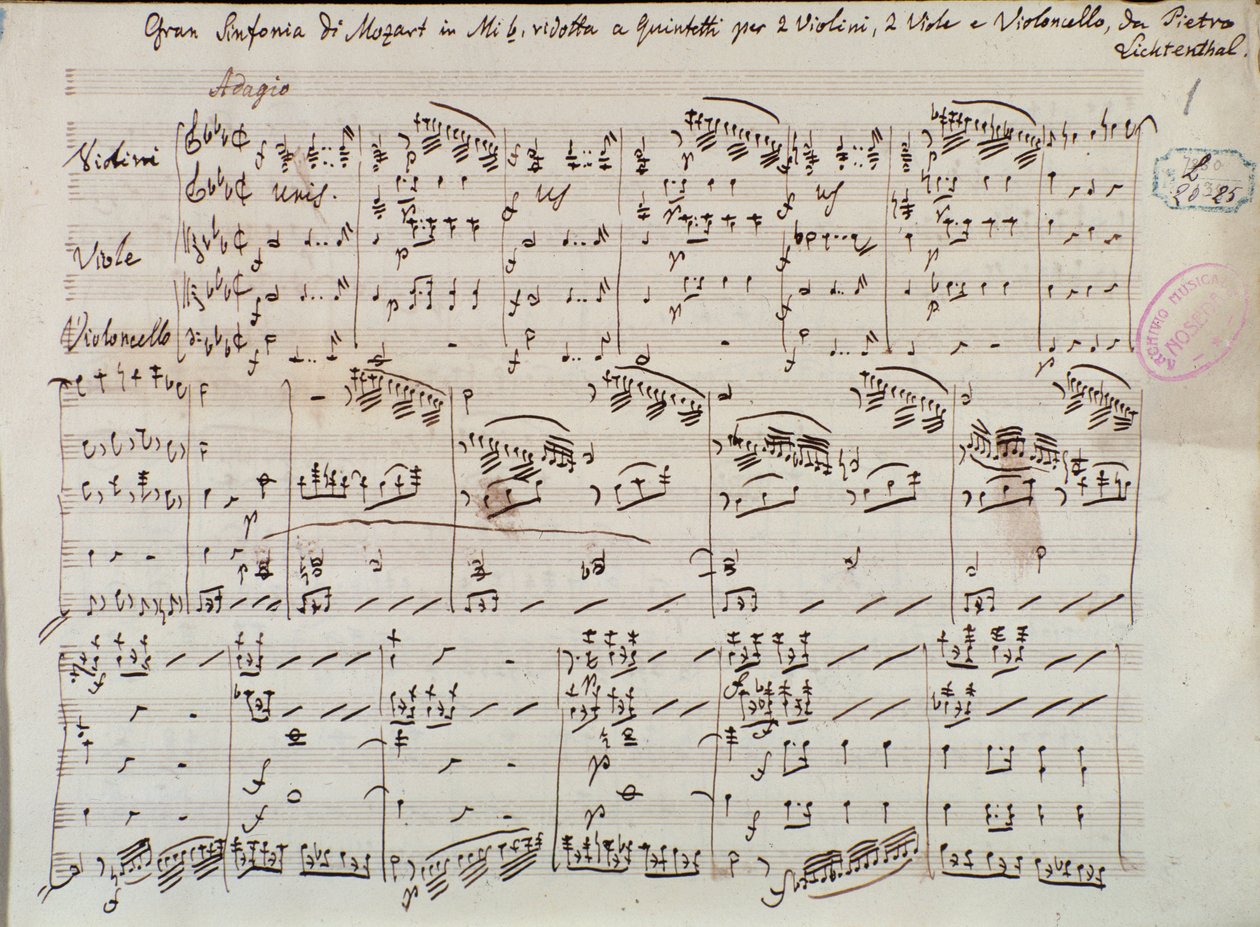 Gran Sinfonia di Mozart in Mi b, ridotta a Quintetti per 2 Violini, 2 Viole e Violoncello, da Pietro
Lichtenthal.
Adagio
1
Violini
unis.
Viole
Violoncello
ARCHIVIO MUSICALE
NOSEDA